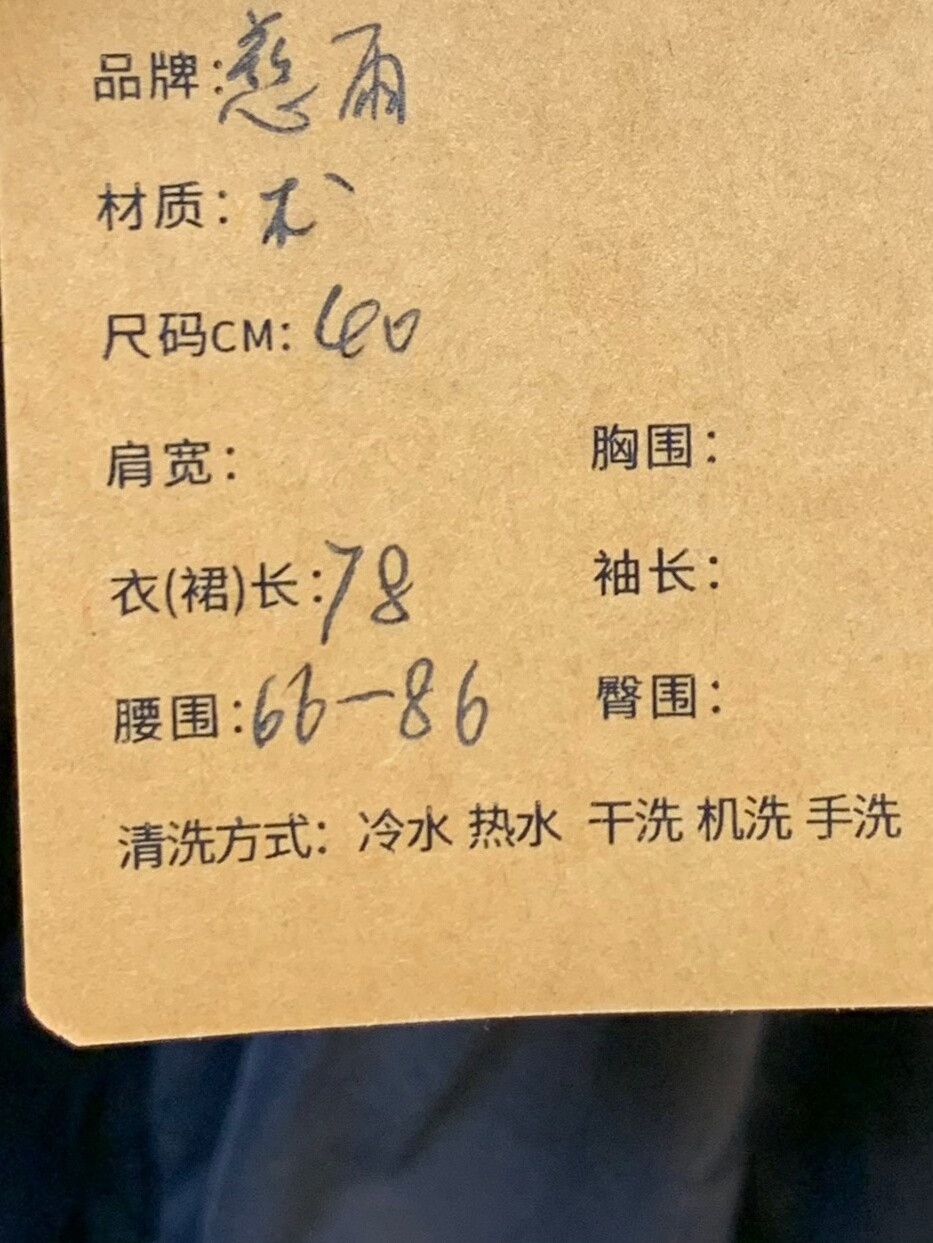 品牌:慈雨
材质:
尺码CM:40
肩宽: 胸围:
衣(裙)长:78 袖长:
腰围:66-86 臀围:
清洗方式: 冷水 热水 干洗 机洗 手洗